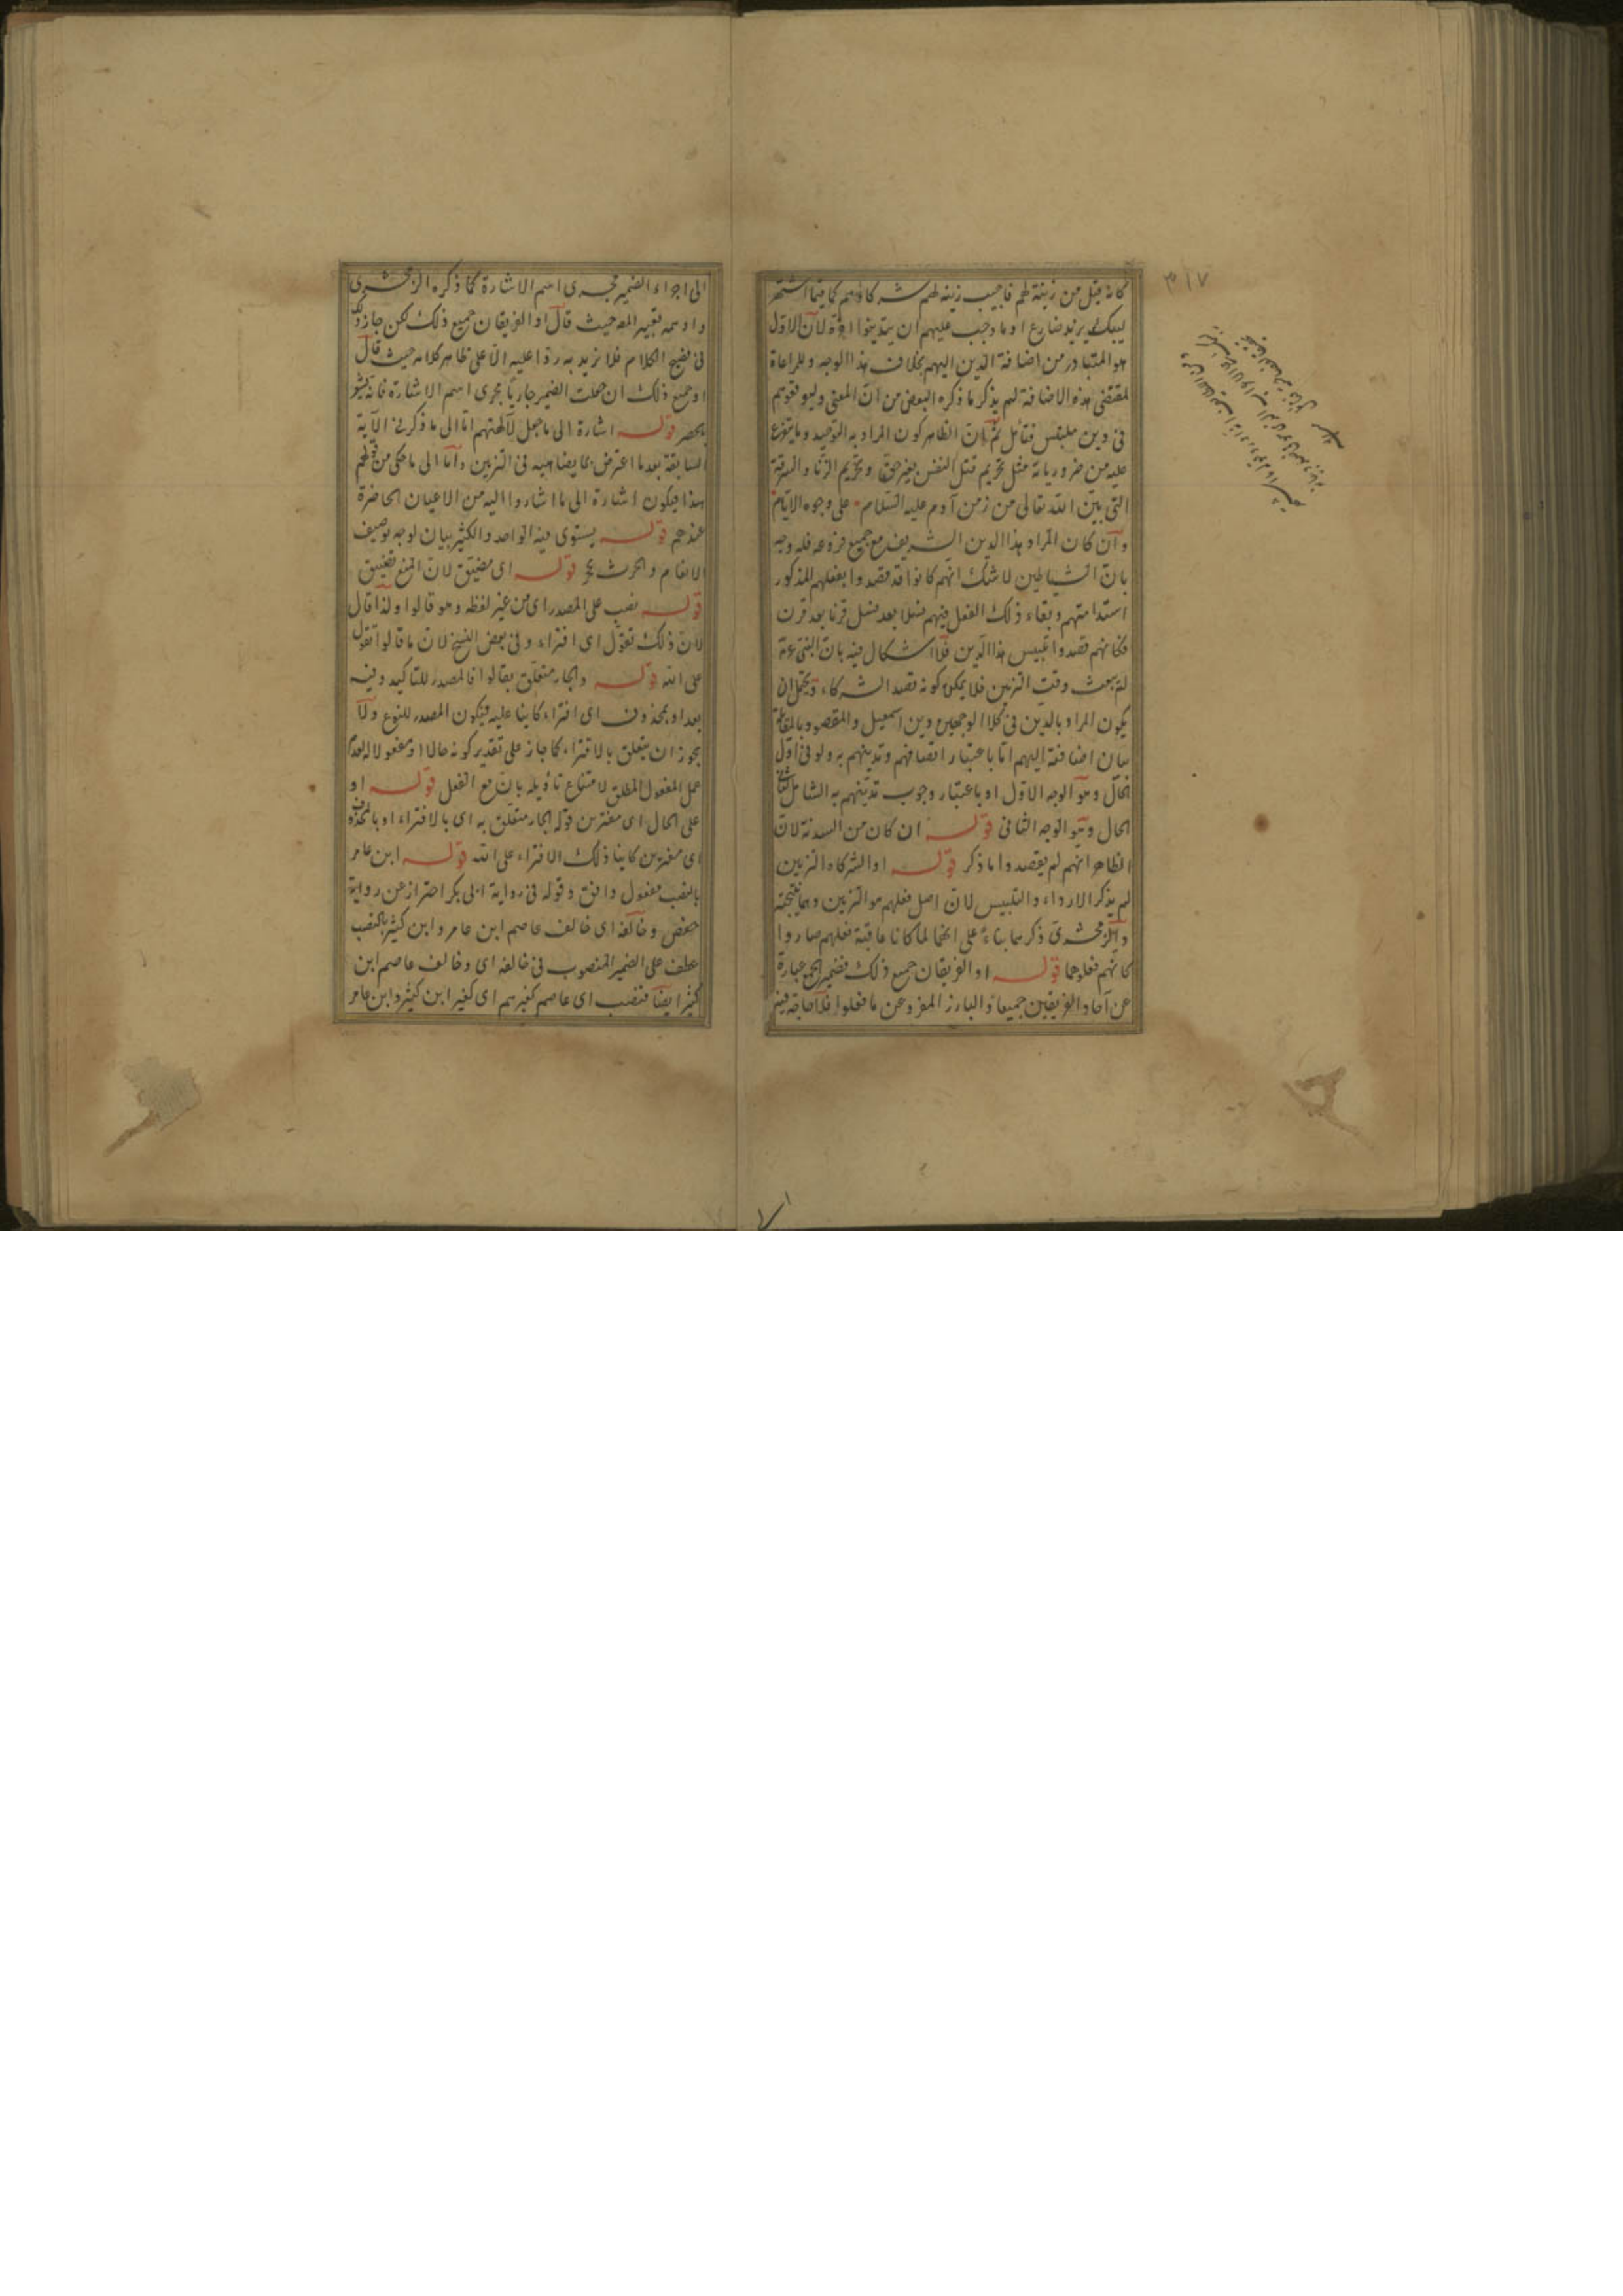 ٣١٧
كانه قيل من زينة لهم فاجيب زينه لهم شركاؤهم كما فيما اشتهر
ليبك يزيد ضارع او ما وجب عليهم ان يتدينوا اخره لان الاول
هو المتبادر من اضافة الدين اليهم بخلاف هذا الوجه وللراعاة
لمقتضى هذه الاضافة لم يذكر ما ذكره البعض من ان المعنى وليوقعوهم
فى دين ملتبس فتأمل ثم ان الظاهر كون المراد به التوحيد وما يتفرع
عليه من ضروريات مثل تحريم قتل النفس بغير حق وتحريم الزنا والسرقة
التى بين الله تعالى من زمن آدم عليه السلام على وجوه الاتمام
وان كان المراد هذا الدين الشريف مع جميع فروعه فله وجه
بان الشياطين لا شك انهم كانوا قد قصدوا بفعلهم المذكور
استدامتهم وبقاء ذلك الفعل فيهم نسلا بعد نسل قرنا بعد قرن
فكانهم قصدوا تلبيس هذا الدين فلا اشكال فيه بان النبى عم
لم يبعث وقت التزيين فلا يمكن كونه قصد الشركاء ويحتمل ان
يكون المراد بالدين فى كلا الوجهين دين اسمعيل والمقصود بالمقابلة
بيان اضافته اليهم اما باعتبار اتصافهم وتدينهم به ولو فى اول
الحال وهو الوجه الاول او باعتبار وجوب تدينهم به الشامل لثانى
الحال وهو الوجه الثانى قوله ان كان من السدنة لان
الظاهر انهم لم يقصدوا ما ذكر قوله او الشركاء التزيين
لم يذكر الارداء والتلبيس لان اصل فعلهم هو التزيين وهما نتيجته
والزمخشرى ذكرهما بناء على انهما لما كانا عاقبة فعلهم صاروا
كانهم فعلوهما قوله او الفريقان جميع ذلك فضمير الجمع عبارة
عن آحاد الفريقين جميعا والبارز المفرد عن ما فعلوا فلا حاجة فيه
الى اجراء الضمير مجرى اسم الاشارة كما ذكره الزمخشرى
واوهمه تعبير المص حيث قال او الفريقان جميع ذلك لكن جاز ذلك
فى فصيح الكلام فلا نريد به ردا عليه الا على ظاهر كلامه حيث قال
او جميع ذلك ان جعلت الضمير جاريا مجرى اسم الاشارة فانه يشعر
بالحصر قوله اشارة الى ما جعل لآلهتهم اما الى ما ذكر فى الآية
السابقة بعد ما اعترض بما يضاهيه فى التزيين واما الى ما حكى من قولهم
هذا فيكون اشارة الى ما اشاروا اليه من الاعيان الحاضرة
عندهم قوله يستوى فيه الواحد والكثير بيان لوجه توصيف
الانعام والحرث بحجر قوله اى مضيق لان المنع تضييق
قوله نصب على المصدر اى من غير لفظه وهو قالوا ولذا قال
لان ذلك تقول اى افتراء وفى بعض النسخ لان ما قالوا تقول
على الله قوله والجار متعلق بقالوا فالمصدر للتاكيد وفيه
بعد او بمحذوف اى افتراء كاينا عليه فيكون المصدر للنوع ولا
يجوز ان يتعلق بالافتراء كما جاز على تقدير كونه حالا او مفعولا له لعدم
عمل المفعول المطلق لامتناع تاويله بان مع الفعل قوله او
على الحال اى مفترين قوله الجار متعلق به اى بالافتراء او بالمحذوف
اى مفترين كاينا ذلك الافتراء على الله قوله ابن عامر
بالنصب مفعول وافق وقوله فى رواية ابى بكر احتراز عن رواية
حفص وخالفه اى خالف عاصم ابن عامر وابن كثير بالنصب
عطف على الضمير المنصوب فى خالفه اى وخالف عاصم ابن
كثير ايضا فنصب اى عاصم كغيرهم اى كغير ابن كثير وابن عامر